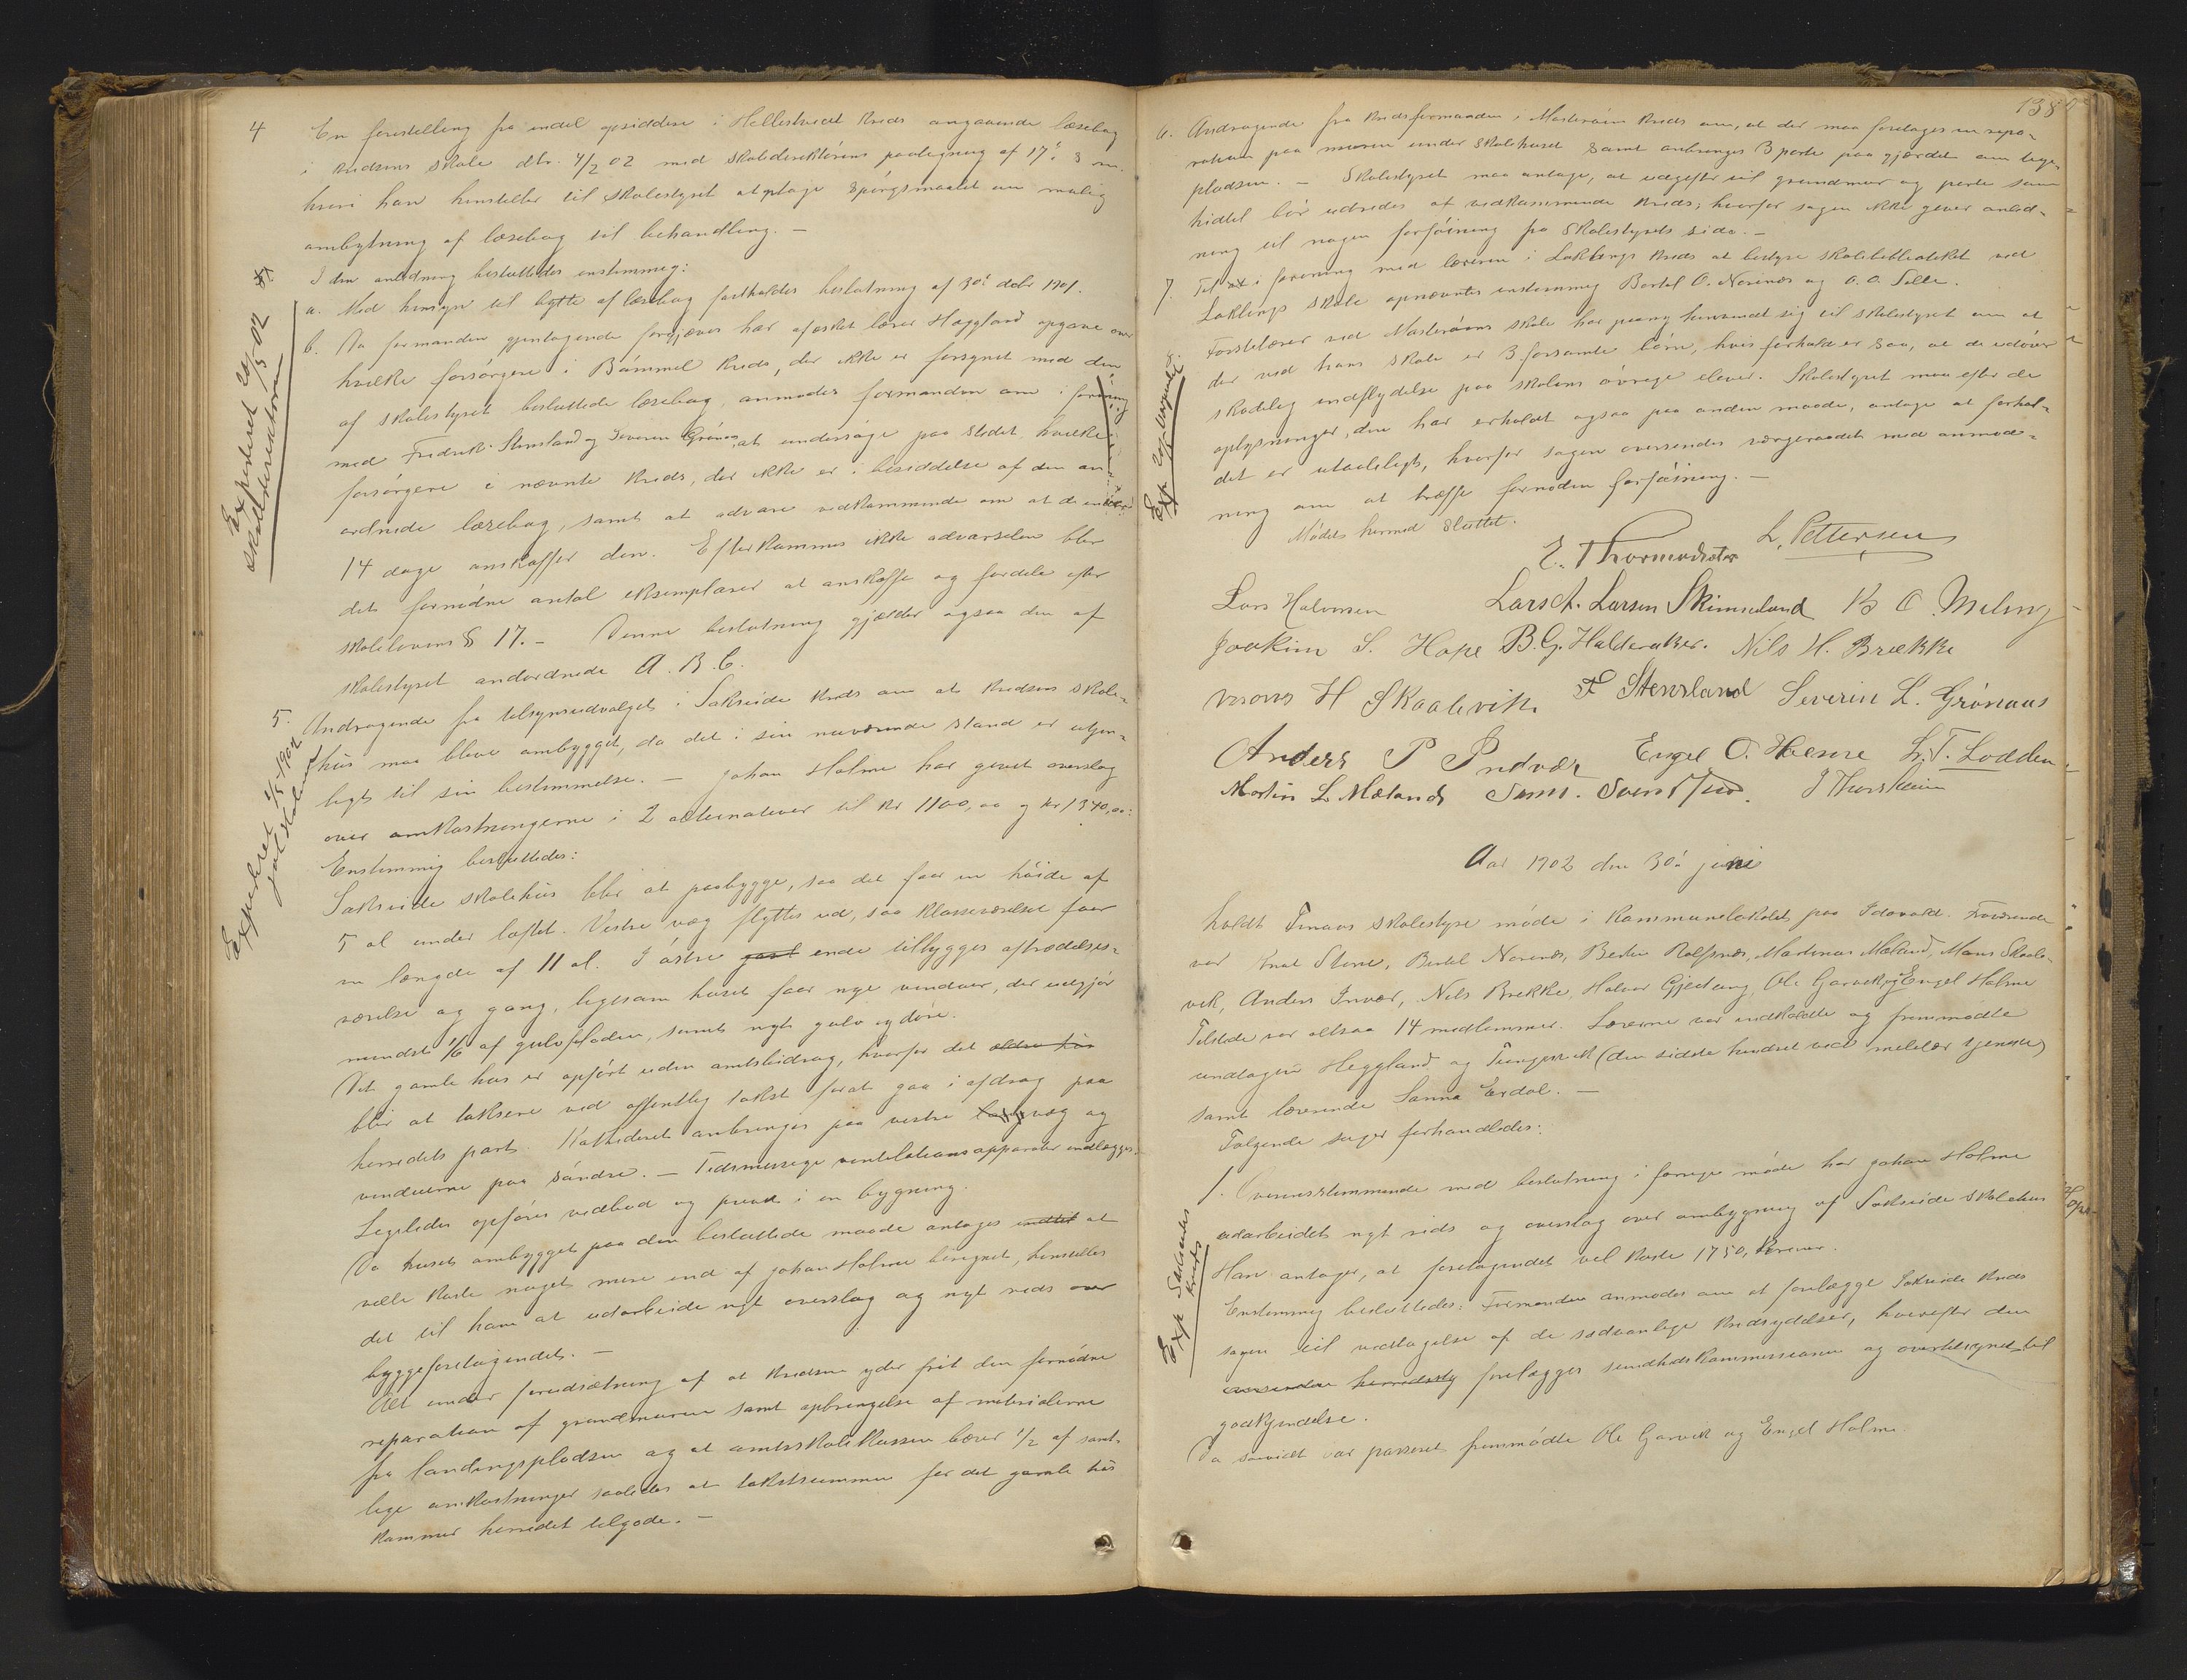 4 En forestilling fra endel opsiddere i Hellestveit kreds angaaende læsebog
i kredsens skole dtr. 4/2 02 med skoledirektørens paategning af 17de s m.
hvori han henstiller til skolestyret at optage spørgsmaalet om mulig
ombytning af læsebog til behandling. –
I den anledning besluttedes enstemmig:
a. Med hensyn til bytte af læsebog fastholdes beslutning af 30te decbr 1901.
b. Da formanden gjentagende forgjæves har afæsket lærer Heggland opgave over
hvilke forsørgere i Bømmel kreds, der ikke er forsynet med den
af skolestyret besluttede læsebog, anmodes formanden om i forening
med Fredrik Stensland og Severin Grønnaas at undersøge paa stedet hvilke
forsørgere i nævnte kreds, der ikke er i besiddelse af den an-
ordnede læsebog, samt at advare vedkommende om at de inden
14 dage anskaffer den. Efterkommes ikke advarselen blir
det fornødne antal eksemplarer at anskaffe og fordele efter
skolelovens § 17. – Denne beslutning gjælder ogsaa den af
skolestyret andordnede A. B. C.
Expederet 20/3 02
skoledirektøren
5. Andragende fra tilsynsudvalget i Sakseide kreds om at kredsens skole-
hus maa blive ombygget, da det i sin nuværende stand er utjen-
ligt til sin bestemmelse. – Johan Holme har givet overslag
over omkostningerne i 2 alternativer til kr 1100,00 og kr 1340,00.
Enstemmig besluttedes:
Sakseide skolehus blir at paabygge, saa det faar en høide af
5 al under loftet. Vestre væg flyttes ud, saa klasseværelset faar
en længde af 11 al. I østre gavl ende tilbygges aftrædelses-
værelse og gang, ligesom huset faar nye vinduer, der udgjør
mindst 1/6 af gulvfladen, samt nyt gulv og døre.
Det gamle hus er opført uden amtsbidrag, hvorfor det ældre hus
blir at taksere ved offentlig takst forat gaa i afdrag paa
herredets part. Kathederet anbringes paa vestre langvæg og
vinduerne paa søndre. – Tidsmæssige ventilationsapparater indlægges.
Ligeledes opføres vedbod og privat i en bygning.
Da huset ombygget paa den besluttede maade antages at
ville koste noget mere end af Johan Holme beregnet, henstilles
det til ham at udarbeide nyt overslag og nyt rids over
byggeforetagendet. –
Alt under forudsætning af at kredsen yder frit den fornødne
reparation af grundmuren samt opbringelse af materialerne
fra landingspladsen og at amtsskolekassen bærer 1/2 af samt-
lige omkostninger saaledes at takstsummen for det gamle hus
kommer herredet tilgode. –
Expederet 2/5 1902
138
6. Andragende fra kredsformanden i Mosterøens kreds om, at der maa foretages en repa-
ration paa muren under skolehuset samt anbringes 3 porte paa gjærdet om lege-
pladsen. – Skolestyret maa antage, at udgifter til grundmur og porte som
hidtil bør udredes af vedkommende kreds; hvorfor sagen ikke giver anled-
ning til nogen forføining fra skolestyrets side. –
7. Til i forening med læreren i Løklings kreds at bestyre skolebibliotheket ved
Løklings skole opnævntes enstemmig Bertel O. Norenes og O. O. Selle.
Førstelærer ved Mosterøens skole har paany henvendt sig til skolestyret om at
der ved hans skole er 3 forsømte børn, hvis forhold er saa, at de udøver
skadelig indflydelse paa skolens øvrige elever. Skolestyret maa efter de
oplysninger, den har erholdt ogsaa paa anden maade, antage at forhol-
det er utaaleligt, hvorfor sagen oversendes værgeraadet med anmod-
ning om at træffe fornøden forføining. –
Mødet hermed sluttet.
E. Thormodsæter L. Pettersen
Lars Halvorsen Lars A. Larsen Skimmeland B O Meling
Joakim S. Hope B. G. Halderaker. Nils H. Brække
Mons H Skaalevik F Stensland Severin L. Grønaas
Anders P Indvær Engel O. Holme L. T. Lodden
Martin L. Mæland J Thorsheim
Aar 1902 den 30te juni
holdt Finaas skolestyre møde i kommunelokalet paa Idavold. Fraværende
var Knut Stene, Bertel Norenes, Bertin Rolfsnæs, Martinus Mæland, Mons Skaale-
vik, Anders Invær, Nils Brekke, Halvor Gjedang, Ole Garvik og Engel Holme
Tilstede var altsaa 14 medlemmer. Lærerne var indkaldte og fremmødte
undtagen Heggland og Tungesvik (den sidste hindret ved militær tjeneste)
samt lærerinde Sanna Erdal. –
Følgende sager forhandledes:
1. Overensstemmende med beslutning i forrige møde har Johan Holme
udarbeidet nyt rids og overslag over ombygning af Sakseide skolehus
Han antager, at foretagendet vil koste 1750, kroner.
Enstemmig besluttedes: Formanden anmodes om at forelægge Sakseide kreds
sagen til vedtagelse af de sædvanlige kredsydelser, hvorefter den
oversendes herredssty forelægges sundhedskommissionen og overtilsynet til
godkjendelse.
Da saavidt var passeret fremmødte Ole Garvik og Engel Holme.
Exp Sakseide
kreds